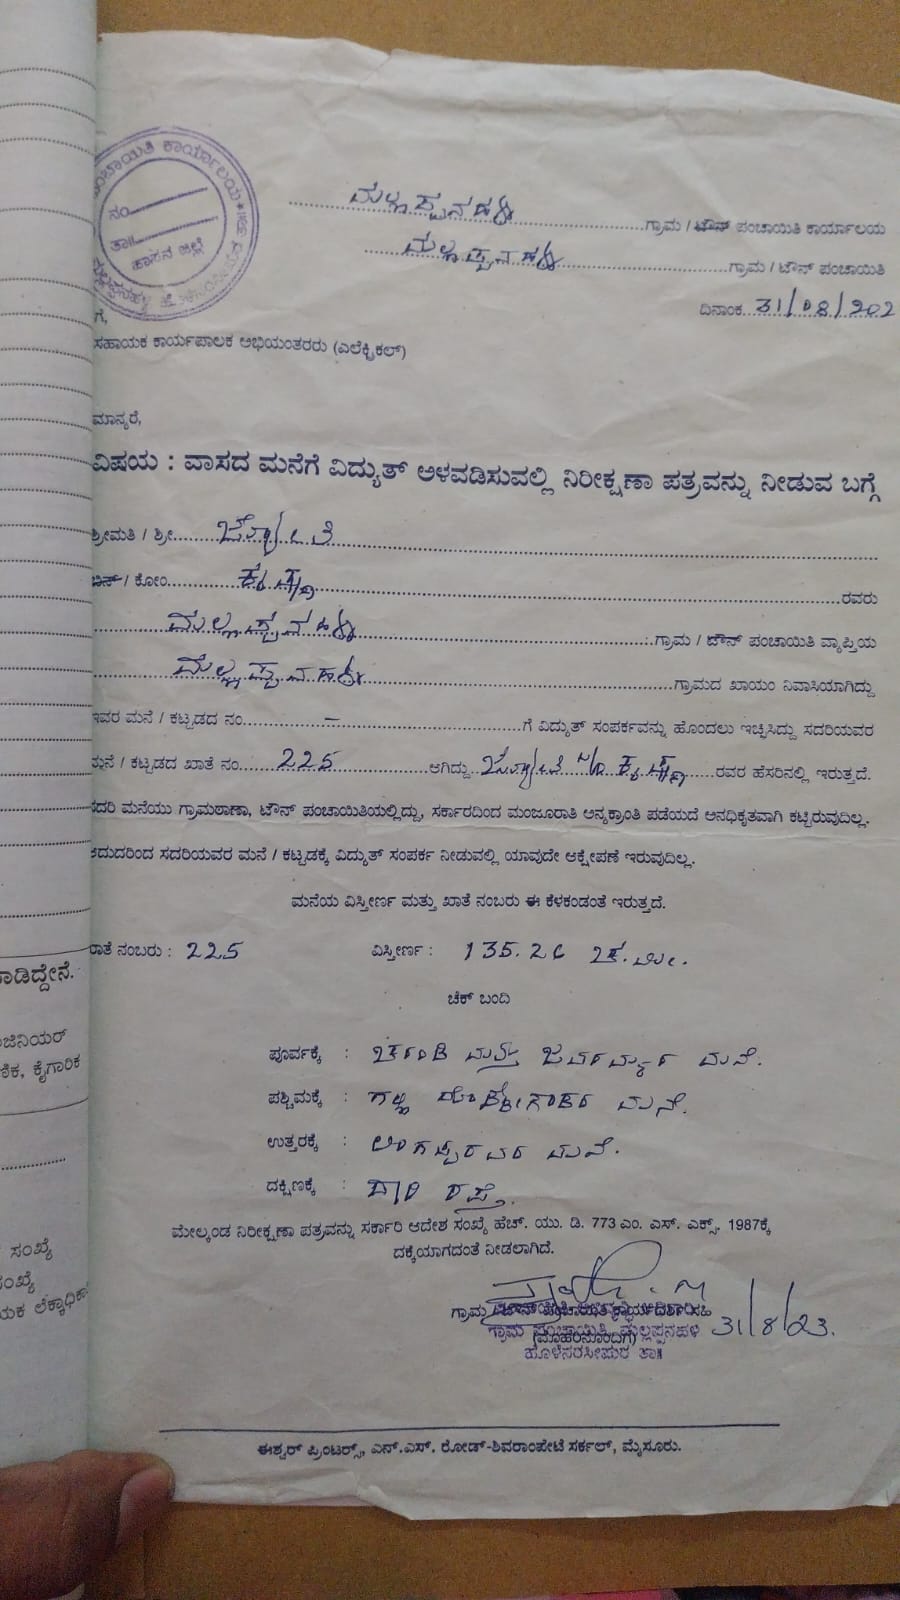 ಪಂಚಾಯಿತಿ ಕಾರ್ಯಾಲಯ
ನಂ
ತಾ॥
ಹಾಸನ ಜಿಲ್ಲೆ
ಮಲ್ಲಪ್ಪನಹಳ್ಳಿ ಗ್ರಾಮ / ಟೌನ್ ಪಂಚಾಯಿತಿ ಕಾರ್ಯಾಲಯ
ಮಲ್ಲಪ್ಪನಹಳ್ಳಿ ಗ್ರಾಮ / ಟೌನ್ ಪಂಚಾಯಿತಿ
ದಿನಾಂಕ 31/08/202
ಗೆ,
ಸಹಾಯಕ ಕಾರ್ಯಪಾಲಕ ಅಭಿಯಂತರರು (ಎಲೆಕ್ಟ್ರಿಕಲ್)
ಮಾನ್ಯರೆ,
ವಿಷಯ : ವಾಸದ ಮನೆಗೆ ವಿದ್ಯುತ್ ಅಳವಡಿಸುವಲ್ಲಿ ನಿರೀಕ್ಷಣಾ ಪತ್ರವನ್ನು ನೀಡುವ ಬಗ್ಗೆ
ಶ್ರೀಮತಿ / ಶ್ರೀ ಜ್ಯೋತಿ
ಬಿನ್ / ಕೋಂ ಕೃಷ್ಣ ರವರು
ಮಲ್ಲಪ್ಪನಹಳ್ಳಿ ಗ್ರಾಮ / ಟೌನ್ ಪಂಚಾಯಿತಿ ವ್ಯಾಪ್ತಿಯ
ಮಲ್ಲಪ್ಪನಹಳ್ಳಿ ಗ್ರಾಮದ ಖಾಯಂ ನಿವಾಸಿಯಾಗಿದ್ದು
ಇವರ ಮನೆ / ಕಟ್ಟಡದ ನಂ - ಗೆ ವಿದ್ಯುತ್ ಸಂಪರ್ಕವನ್ನು ಹೊಂದಲು ಇಚ್ಛಿಸಿದ್ದು ಸದರಿಯವರ
ಮನೆ / ಕಟ್ಟಡದ ಖಾತೆ ನಂ 225 ಆಗಿದ್ದು ಜ್ಯೋತಿ ಕೃಷ್ಣ ರವರ ಹೆಸರಿನಲ್ಲಿ ಇರುತ್ತದೆ.
ಸದರಿ ಮನೆಯು ಗ್ರಾಮಠಾಣಾ, ಟೌನ್ ಪಂಚಾಯಿತಿಯಲ್ಲಿದ್ದು, ಸರ್ಕಾರದಿಂದ ಮಂಜೂರಾತಿ ಅನ್ಯಕ್ರಾಂತಿ ಪಡೆಯದೆ ಅನಧಿಕೃತವಾಗಿ ಕಟ್ಟಿರುವುದಿಲ್ಲ.
ಆದುದರಿಂದ ಸದರಿಯವರ ಮನೆ / ಕಟ್ಟಡಕ್ಕೆ ವಿದ್ಯುತ್ ಸಂಪರ್ಕ ನೀಡುವಲ್ಲಿ ಯಾವುದೇ ಆಕ್ಷೇಪಣೆ ಇರುವುದಿಲ್ಲ.
ಮನೆಯ ವಿಸ್ತೀರ್ಣ ಮತ್ತು ಖಾತೆ ನಂಬರು ಈ ಕೆಳಕಂಡಂತೆ ಇರುತ್ತದೆ.
ಖಾತೆ ನಂಬರು : 225 ವಿಸ್ತೀರ್ಣ : 135.26 ಚ.ಮೀ.
ಚೆಕ್ ಬಂದಿ
ಪೂರ್ವಕ್ಕೆ : ಚರಂಡಿ ಮತ್ತು ಮನೆ.
ಪಶ್ಚಿಮಕ್ಕೆ : ಮನೆ.
ಉತ್ತರಕ್ಕೆ : ಲಿಂಗಪ್ಪರವರ ಮನೆ.
ದಕ್ಷಿಣಕ್ಕೆ : ದಾರಿ ರಸ್ತೆ.
ಮೇಲ್ಕಂಡ ನಿರೀಕ್ಷಣಾ ಪತ್ರವನ್ನು ಸರ್ಕಾರಿ ಆದೇಶ ಸಂಖ್ಯೆ ಹೆಚ್. ಯು. ಡಿ. 773 ಎಂ. ಎಸ್. ಎಕ್ಸ್. 1987ಕ್ಕೆ
ದಕ್ಕೆಯಾಗದಂತೆ ನೀಡಲಾಗಿದೆ.
ಗ್ರಾಮ / ಟೌನ್ ಪಂಚಾಯಿತಿ ಕಾರ್ಯದರ್ಶಿ ಸಹಿ
ಗ್ರಾಮ ಪಂಚಾಯಿತಿ, ಮಲ್ಲಪ್ಪನಹಳಿ 31/8/23.
(ಮೊಹರಿನೊಂದಿಗೆ)
ಹೊಳೆನರಸೀಪುರ ತಾ॥
ಈಶ್ವರ್ ಪ್ರಿಂಟರ್ಸ್, ಎನ್.ಎಸ್. ರೋಡ್-ಶಿವರಾಂಪೇಟೆ ಸರ್ಕಲ್, ಮೈಸೂರು.
ಮಾಡಿದ್ದೇನೆ.
ಜಿನಿಯರ್
ಣಿಕ, ಕೈಗಾರಿಕ
ಸಂಖ್ಯೆ
ಸಂಖ್ಯೆ
ಯಕ ಲೆಕ್ಕಾಧಿಕಾ